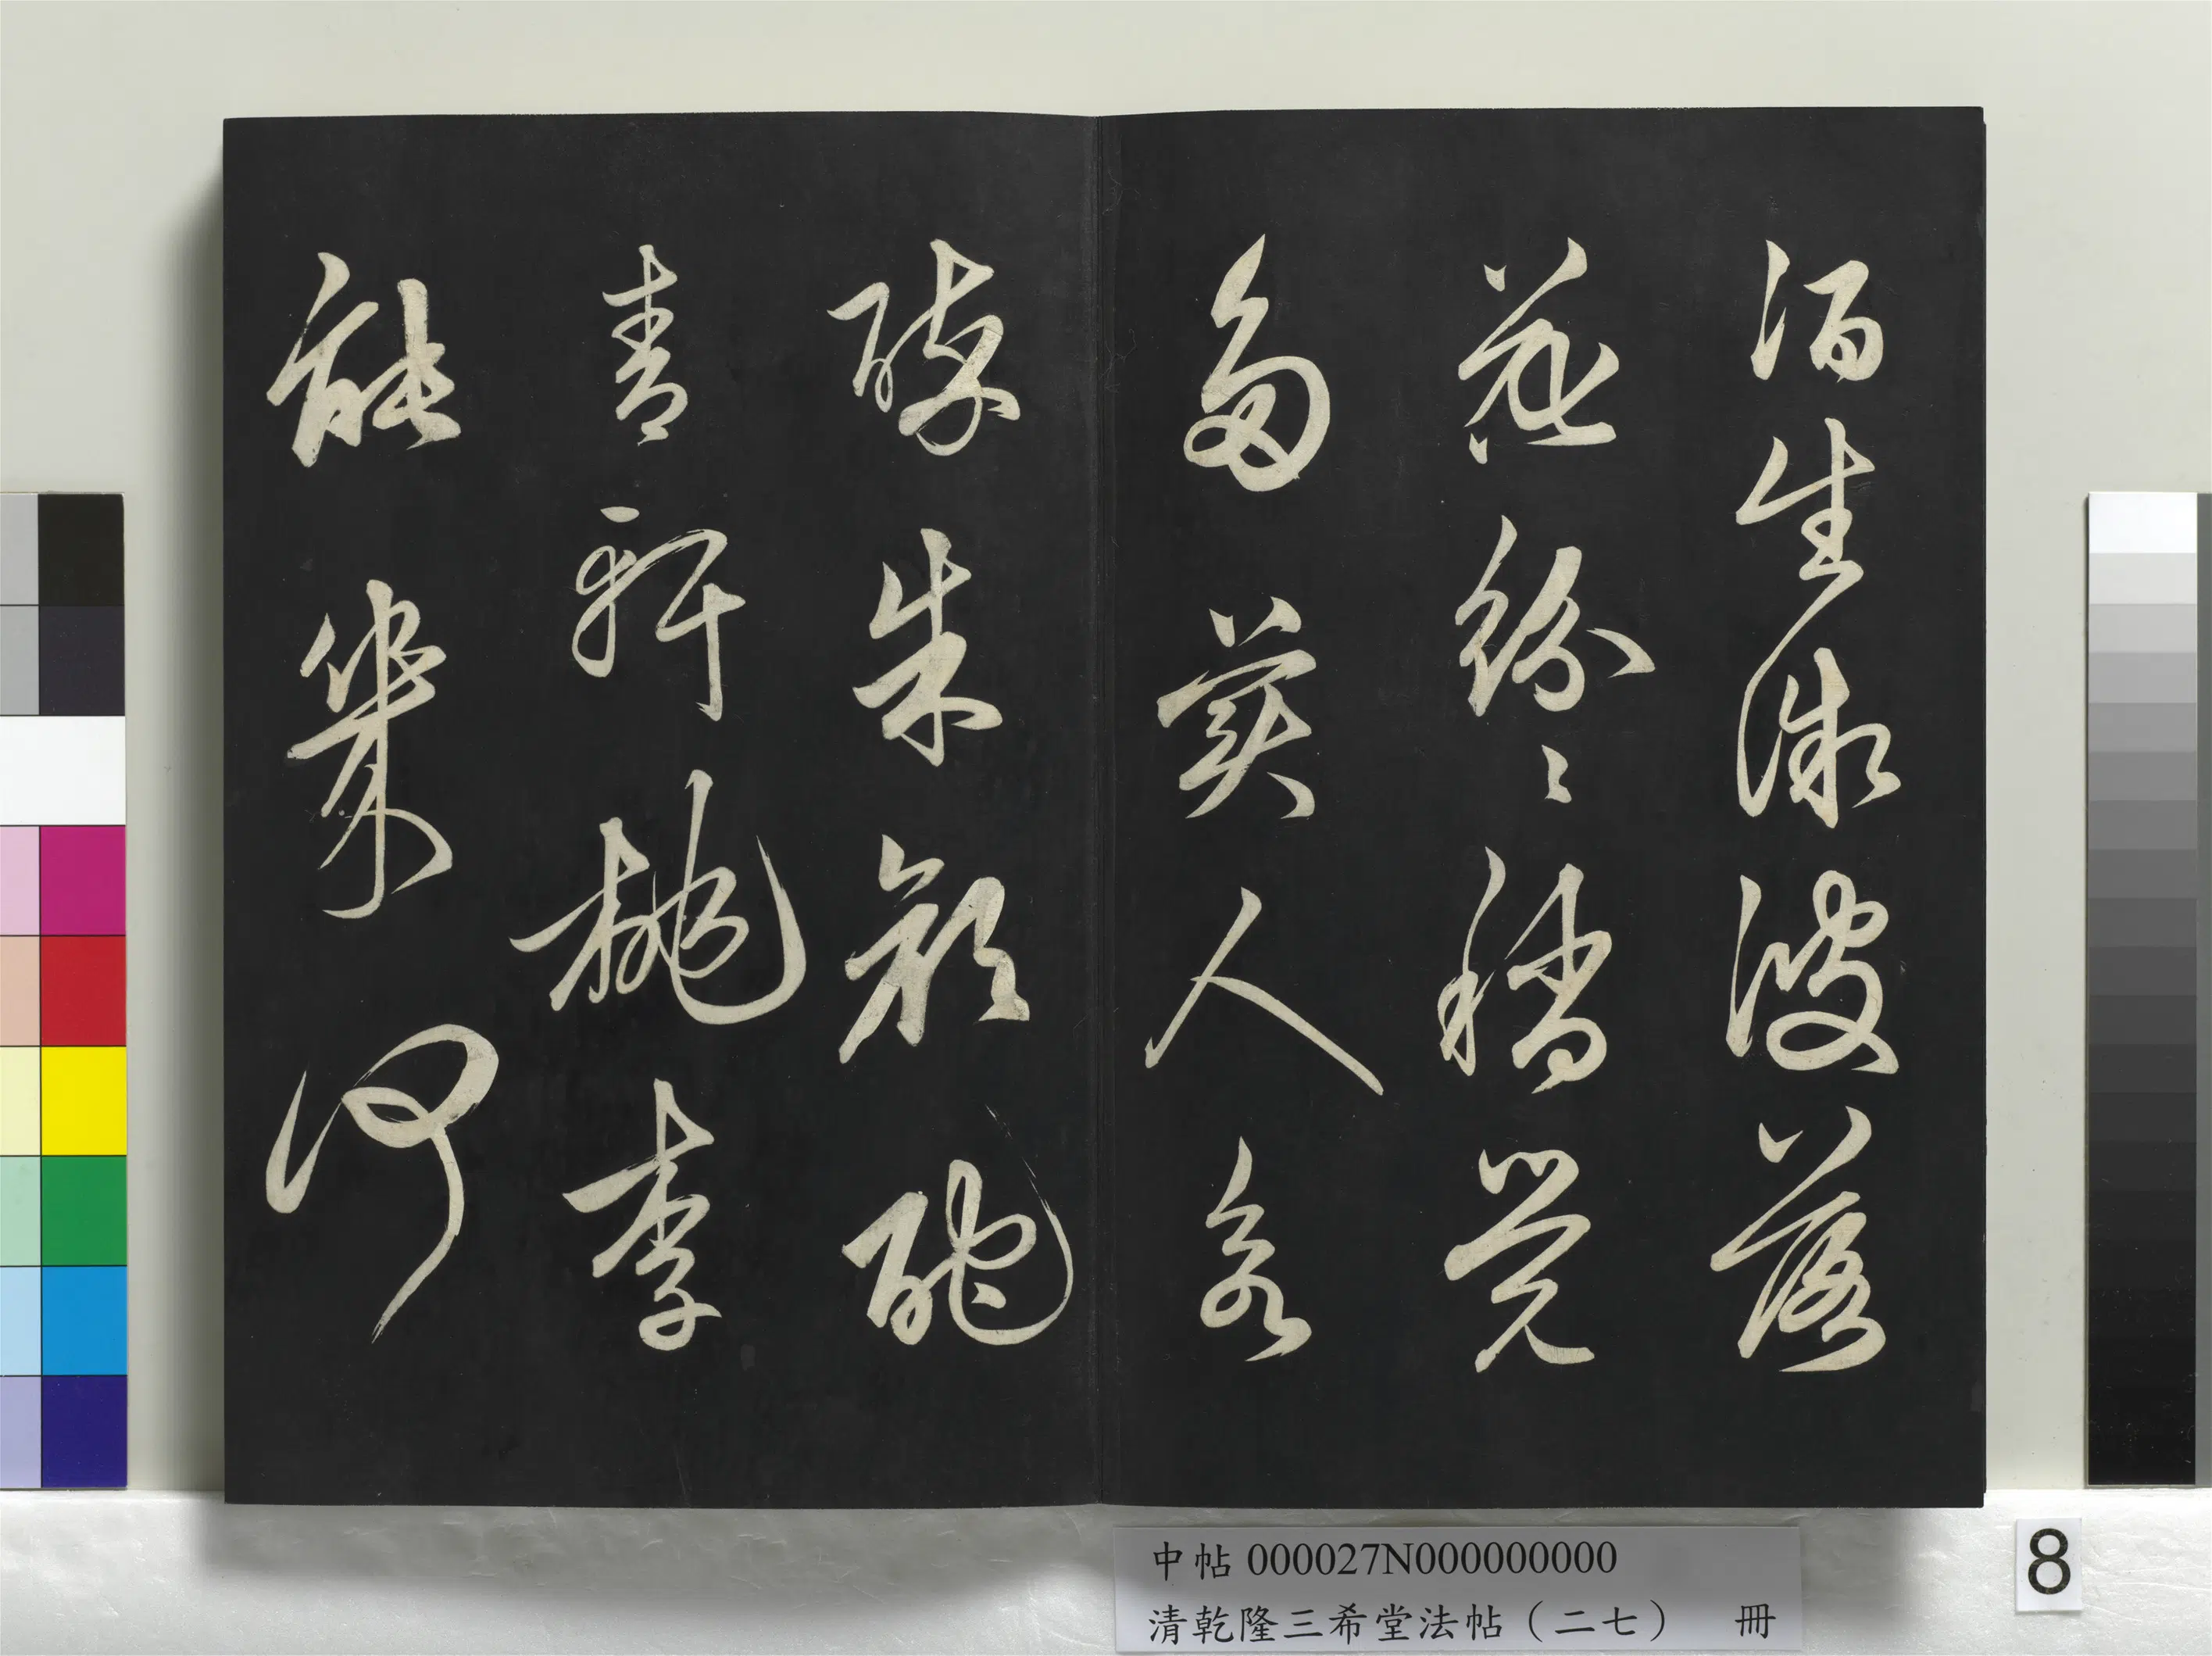 酒生微波落
花紛々稍覺
多美人欲
醉朱顏酡
青軒桃李
能幾何
中帖 000027N000000000
清乾隆三希堂法帖（二七） 冊
8